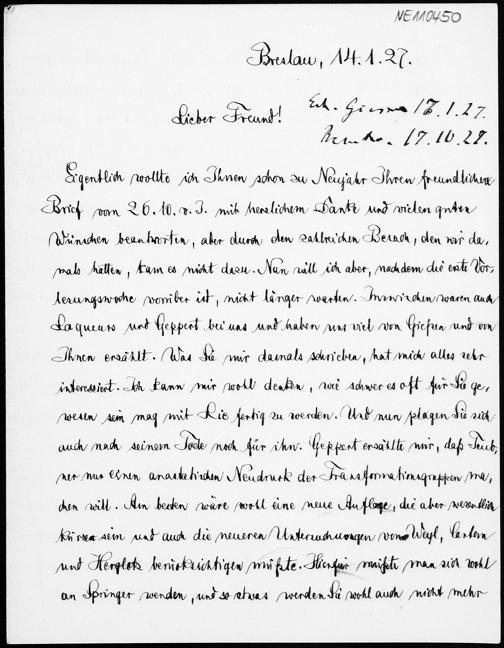 NE110450
Breslau, 14.1.27.
Erh. Giessen 17.1.27.
17.10.28.
Lieber Freund!
Eigentlich wollte ich Ihnen schon zu Neujahr Ihren freundlichen
Brief vom 26.10. v. J. mit herzlichem Danke und vielen guten
Wünschen beantworten, aber durch den zahlreichen Besuch, den wir da-
mals hatten, kam es nicht dazu. Nun will ich aber, nachdem die erste Vor-
lesungswoche vorüber ist, nicht länger warten. Inzwischen waren auch
Laqueurs und Geppert bei uns und haben uns viel von Gießen und von
Ihnen erzählt. Was Sie mir damals schrieben, hat mich alles sehr
interessiert. Ich kann mir wohl denken, wie schwer es oft für Sie ge-
wesen sein mag mit Lie fertig zu werden. Und nun plagen Sie sich
auch nach seinem Tode noch für ihn. Geppert erzählte mir, daß Teub-
ner nur einen anastatischen Neudruck der Transformationsgruppen ma-
chen will. Am besten wäre wohl eine neue Auflage, die aber wesentlich
kürzer sein und auch die neueren Untersuchungen von Weyl, Cartan
und Herglotz berücksichtigen müßte. Hierfür müßte man sich wohl
an Springer wenden, und so etwas werden Sie wohl auch nicht mehr